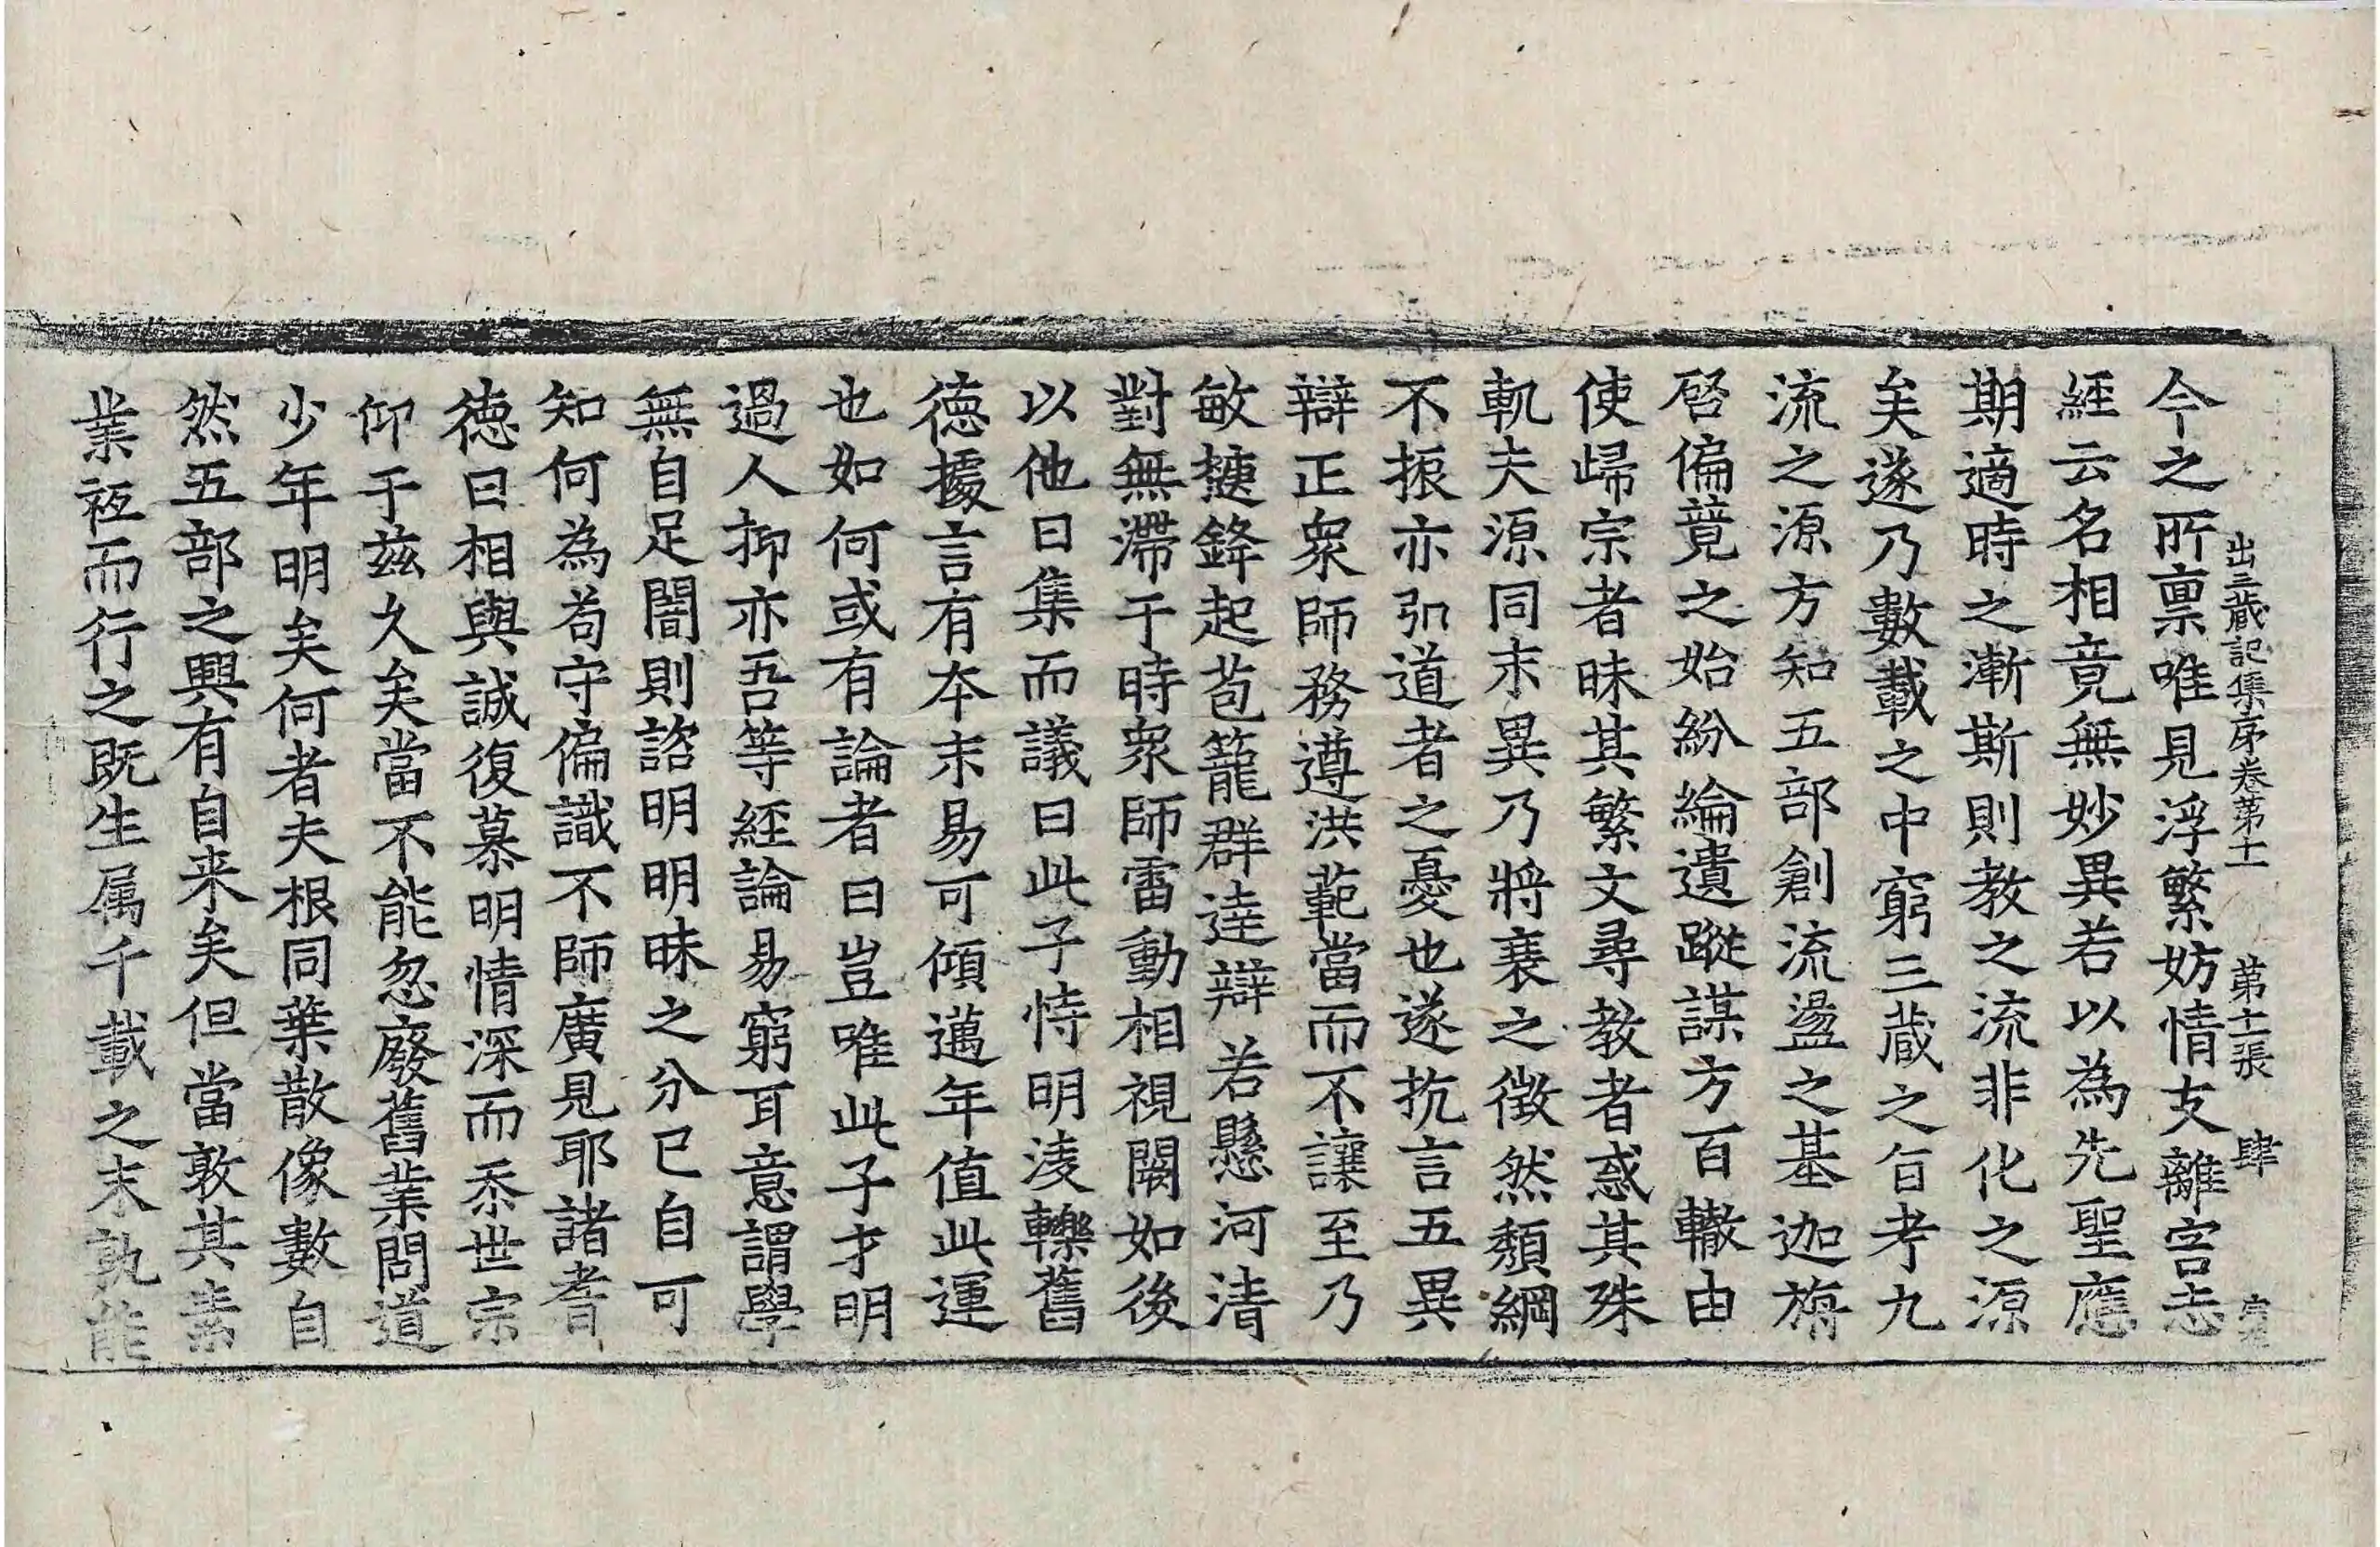 出三蔵記集序卷苐十一 苐十一張 肆
今之所禀唯見浮繁妨情支離害志
經云名相竟無妙異若以為先聖應
期適時之漸斯則教之流非化之源
矣遂乃數載之中窮三蔵之旨考九
流之源方知五部創流盪之基迦旃
啓偏競之始紛綸遺蹤謀方百轍由
使歸宗者昧其繁文尋教者惑其殊
軌夫源同末異乃將衰之徵然頹綱
不振亦弘道者之憂也遂抗言五異
辯正眾師務遵洪範當而不讓至乃
敏捷鋒起苞籠群達辯若懸河清
對無滯于時眾師雷動相視闕如後
以他日集而議曰此子恃明淩轢舊
德據言有本末易可傾邁年值此運
也如何或有論者曰豈唯此子才明
過人抑亦吾等經論易窮耳意謂學
無自足闇則諮明明昧之分已自可
知何為苟守偏識不師廣見耶諸耆
德曰相與誠復慕明情深而忝世宗
仰于茲久矣當不能忽廢舊業問道
少年明矣何者夫根同葉散像數自
然五部之興有自来矣但當敦其素
業袛而行之既生属千載之末孰能